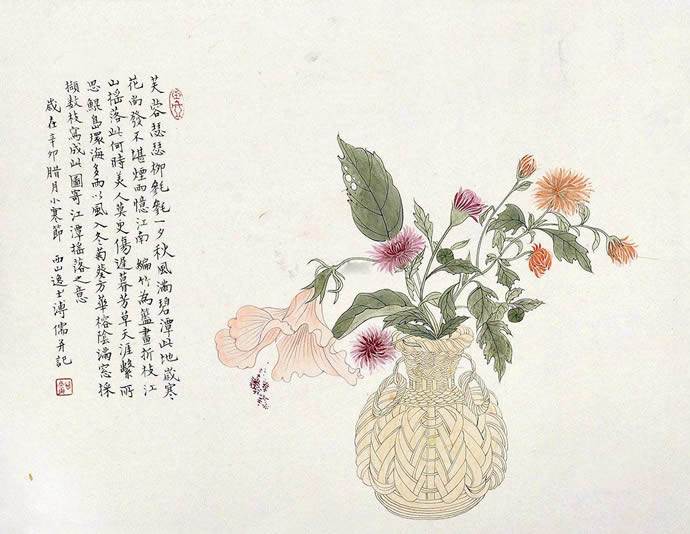 芙蓉瑟瑟柳毿毿一夕秋風滿碧潭此地歲寒
花尚發不堪煙雨憶江南 編竹為籃畫折枝江
山搖落此何時美人莫更傷遲暮芳草天涯繫所
思 鯤島環海多雨以風入冬菊葵方華榕陰滿窓採
擷數枝寫成此圖寄江潭搖落之意
歲在辛卯腊月小寒節 西山逸士溥儒并記